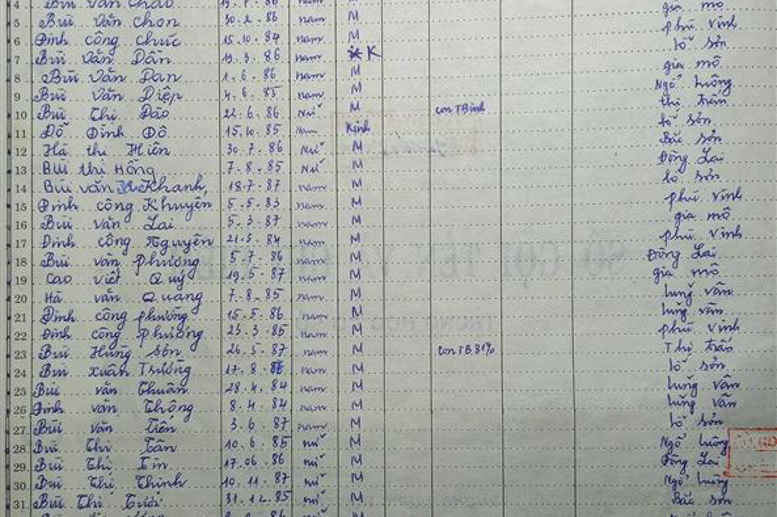 4 Bùi Văn Chảo 19.7.86 nam M gia mô
5 Bùi văn Chon 30.2.86 nam M phú vinh
6 Đinh công chức 15.10.84 nam M lỗ sơn
7 Bùi Văn Dân 19.3.86 nam K gia mô
8 Bùi Văn Dan 1.6.86 nam M Ngổ luông
9 Bùi Văn Diệp 4.6.85 nam M thị trấn
10 Bùi Thị Đào 22.6.86 Nữ M con TBinh lỗ sơn
11 Đỗ Đình Đô 15.10.85 Nam Kinh Bắc sơn
12 Hà thị Hiên 30.7.86 Nữ M Đông Lai
13 Bùi thị Hồng 7.8.85 Nữ M lỗ sơn
14 Bùi văn Khanh 18.7.87 nam M phú vinh
15 Đinh công Khuyên 5.5.83 nam M gia mô
16 Bùi văn Lai 5.3.87 nam M phú vinh
17 Đinh công Nguyên 21.5.84 nam M Đông Lai
18 Bùi văn phương 5.7.86 nam M gia mô
19 Cao viết Quý 19.5.87 nam M lũng vân
20 Hà văn Quang 7.8.85 nam M lũng vân
21 Đinh công phương 15.5.86 nam M phú vinh
22 Đinh công Phương 23.3.85 nam M Thị trấn
23 Bùi Hùng Sơn 26.5.87 nam M con TB 81% lỗ sơn
24 Bùi xuân Trường 17.8.86 nam M lũng vân
25 Bùi văn Thuân 28.4.84 nam M lũng vân
26 Đinh văn Thông 8.4.84 nam M lỗ sơn
27 Bùi văn Tiên 3.6.87 nam M Ngổ luông
28 Bùi Thị Tân 10.6.85 nữ M Đông Lai
29 Bùi Thị Em 17.06.86 nữ M Ngổ luông
30 Bùi Thị Thinh 10.11.87 nữ M Bắc sơn
31 Bùi Thị Tươi 31.12.85 nữ M